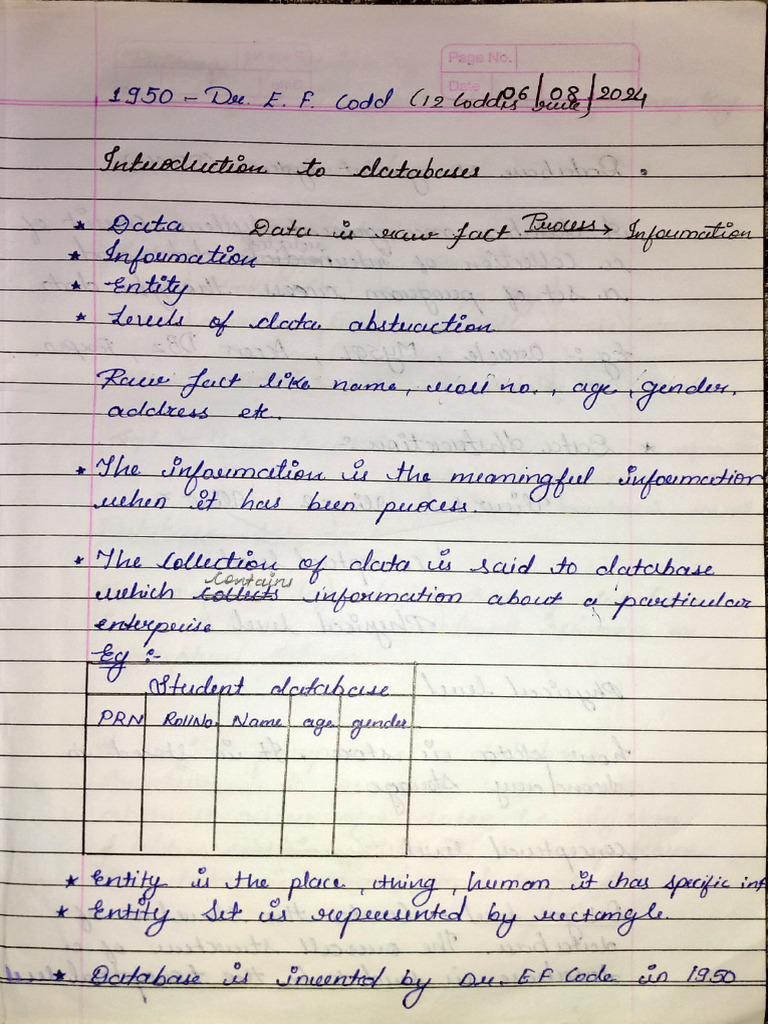 Page No.
Date
1950 - Dr. E. F. Codd (12 Codd's rule) 06/08/2024
Introduction to databases
* Data Data is raw fact Process → Information
* Information
* Entity
* Levels of data abstraction
Raw fact like name, roll no., age, gender,
address etc.
* The information is the meaningful information
when it has been process.
* The collection of data is said to database
contains
which collects information about a particular
enterprise
Eg :-
Student database
PRN RollNo. Name age gender
* Entity is the place, thing, human it has specific inf
* Entity Set is represented by rectangle.
* Database is invented by Dr. EF Code in 1950